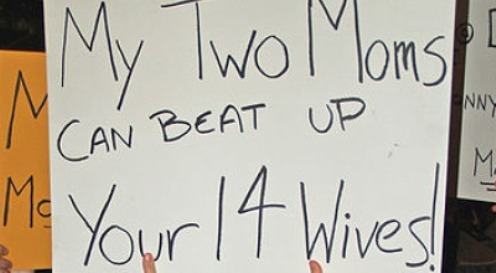 My Two Moms
CAN BEAT UP
Your 14 Wives!